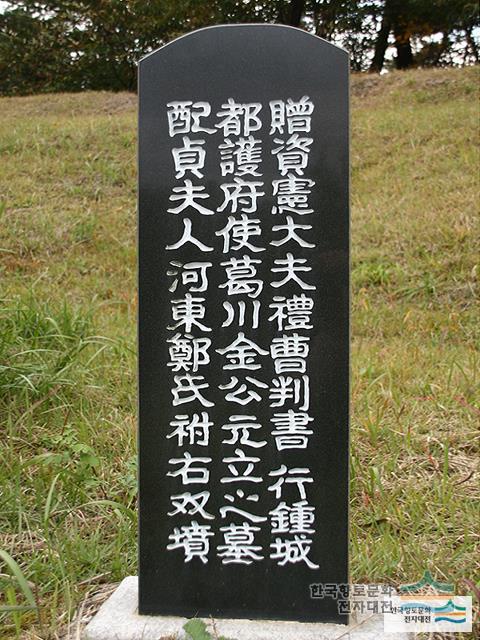 贈資憲大夫禮曹判書 行鍾城
都護府使葛川金公元立之墓
配貞夫人河東鄭氏祔右双墳
한국향토문화
전자대전
한국향토문화
전자대전